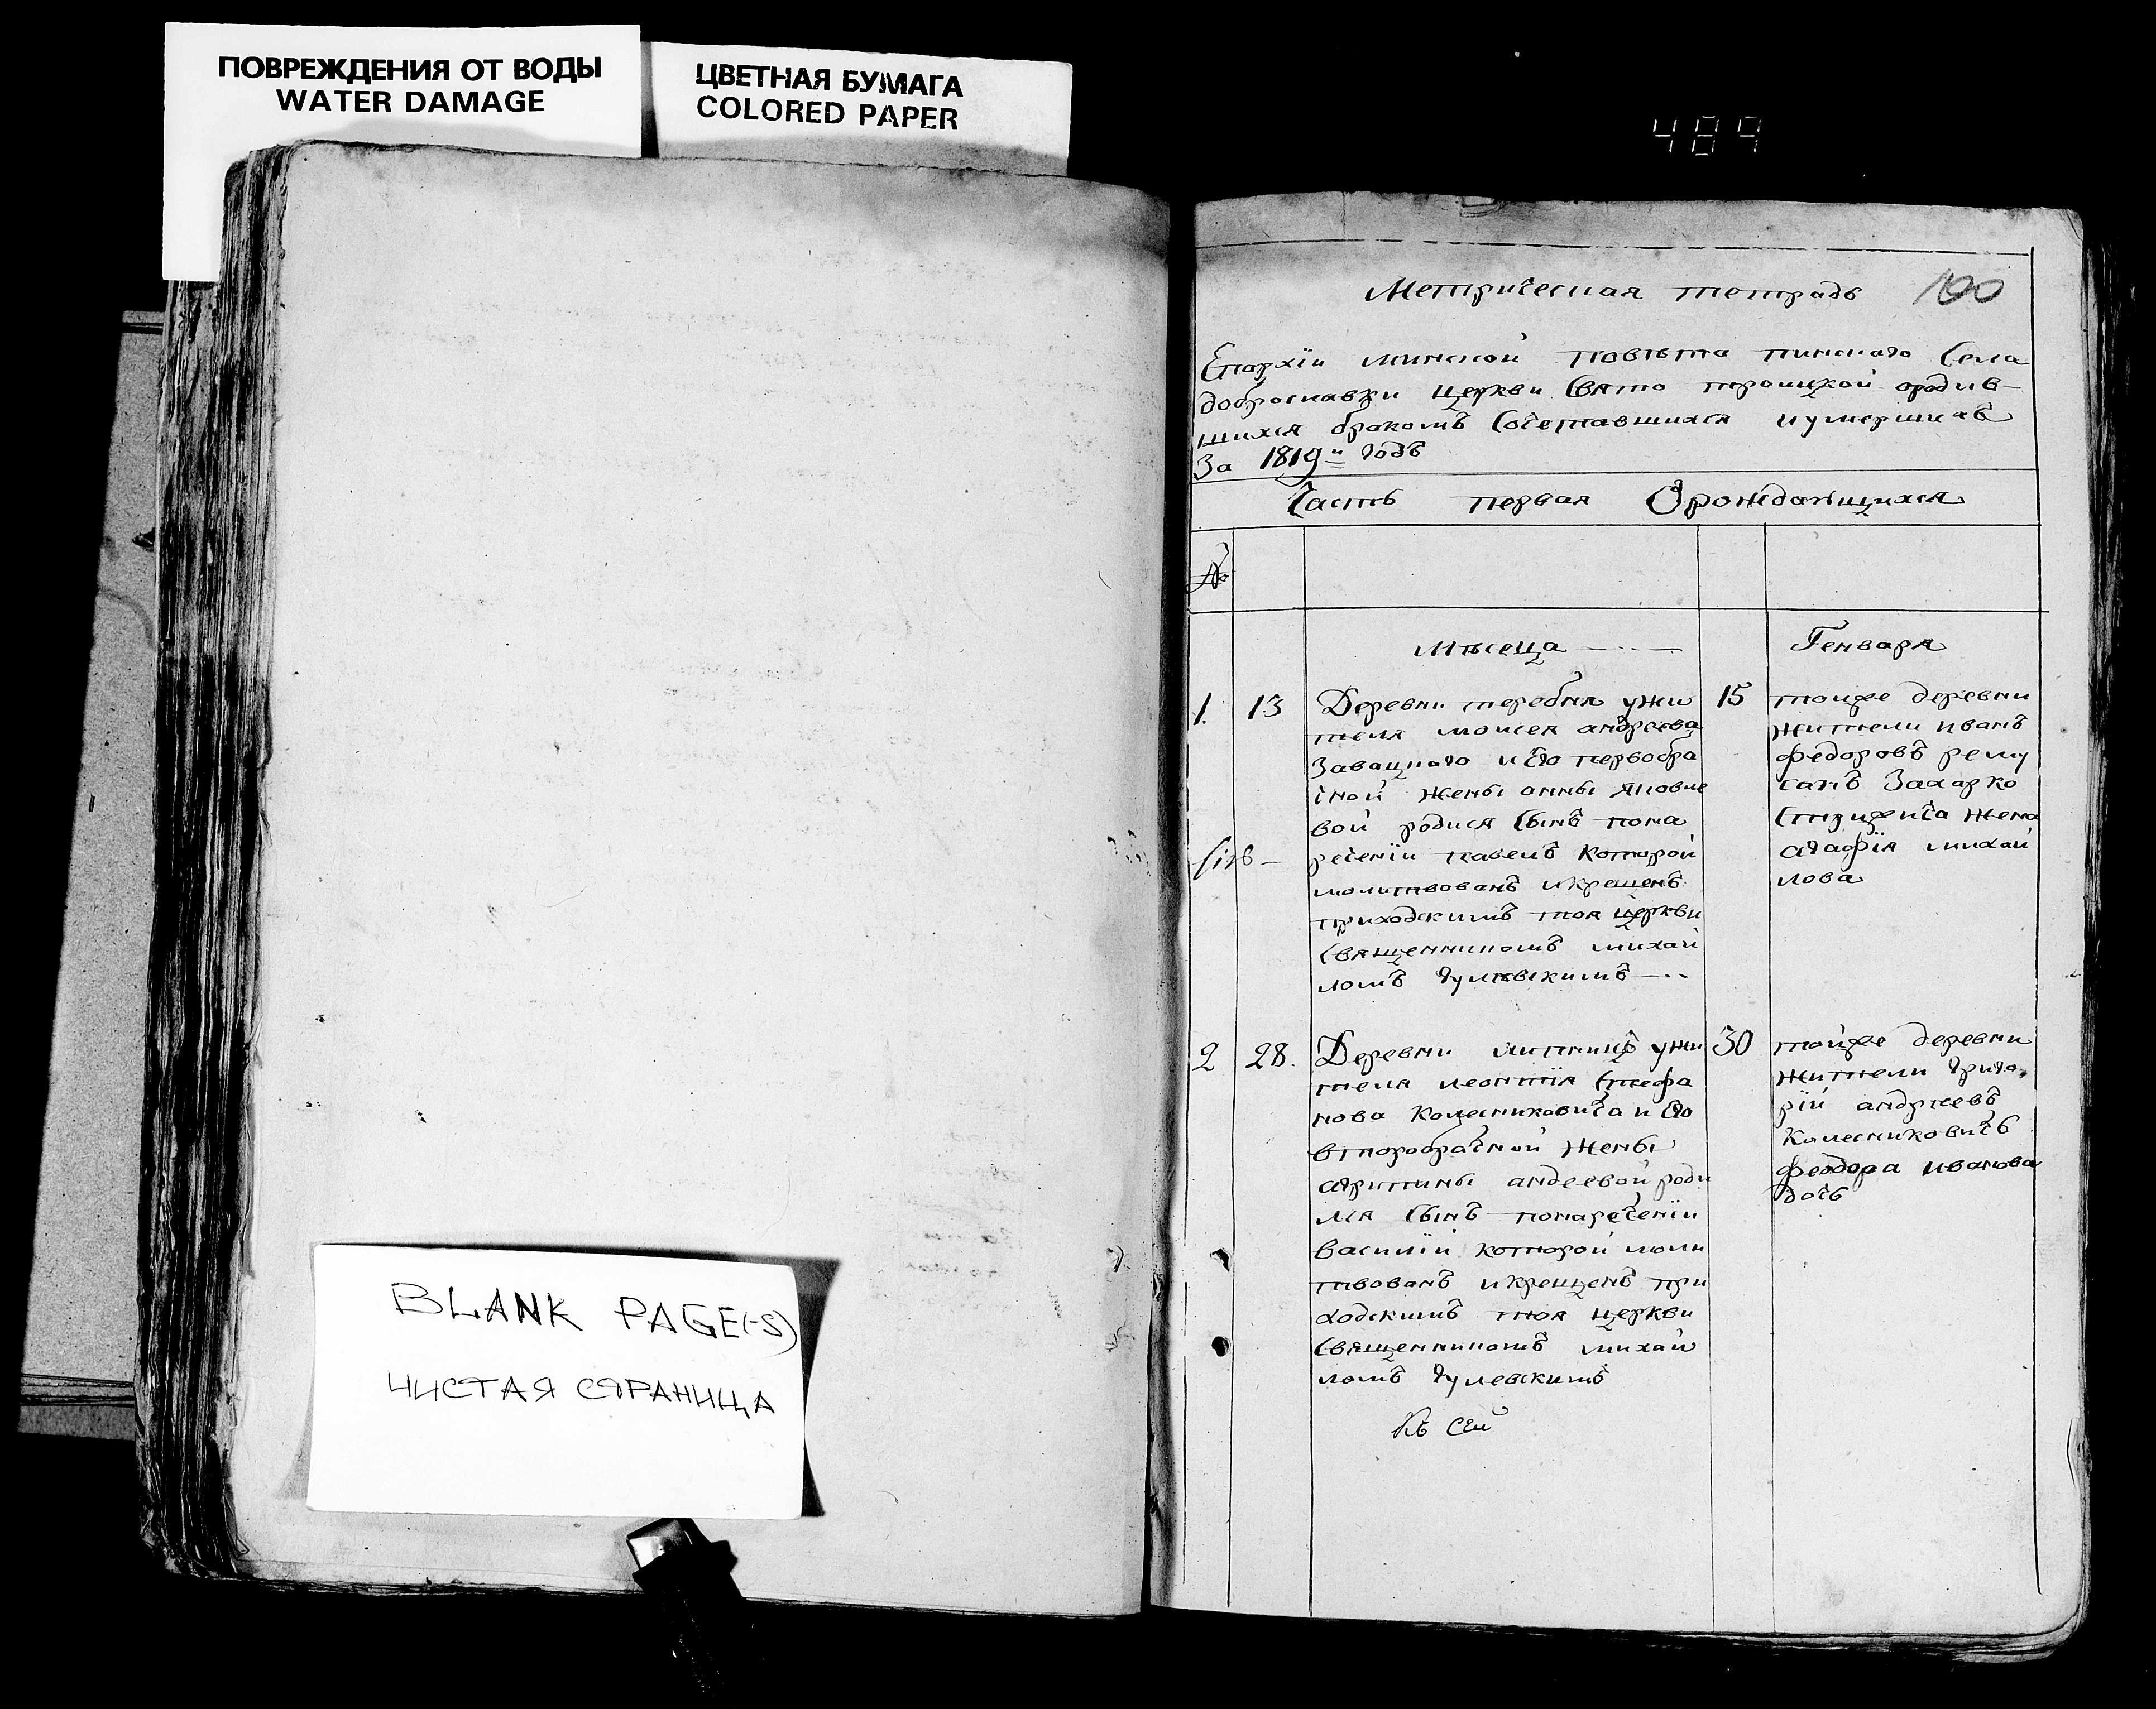 ПОВРЕЖДЕНИЯ ОТ ВОДЫ
WATER DAMAGE
ЦВЕТНАЯ БУМАГА
COLORED PAPER
489
Метрическая тетрадь 100
Епархїи минской повѣта пинскаго Села
доброславки церкви Свято троицкой ородив-
шихся бракомъ Сочетавшихся иумершихъ
За 1819 годъ
Часть первая Орождающихся
№
Мѣсеца Генваря
1. 13
Деревни теребня ужи
теля моисея андреева
Завацкаго и Его первобра
чной жены анны Яковле
вой родися Сынъ пона
речении павелъ Которой
молитвованъ икрещенъ
приходскимъ тоя церкви
Священникомъ михай
ломъ гулевскимъ
15
тойже деревни
жители иванъ
федоровъ
Захарко
жена
агафїя михай
лова
2 28.
Деревни липницъ ужи
теля леонтїя Стефа
нова Колесниковича и Его
второбрачной жены
агрипины андеевой роди
лся Сынъ понаречении
василїй Которой моли
твованъ икрещенъ при
ходскимъ тоя церкви
Священникомъ михай
ломъ гулевскимъ
30
тойже деревни
жители григо
рїй андреевъ
Колесниковичъ
феодора иванова
дочь
BLANK PAGE(-S)
ЧИСТАЯ СТРАНИЦА